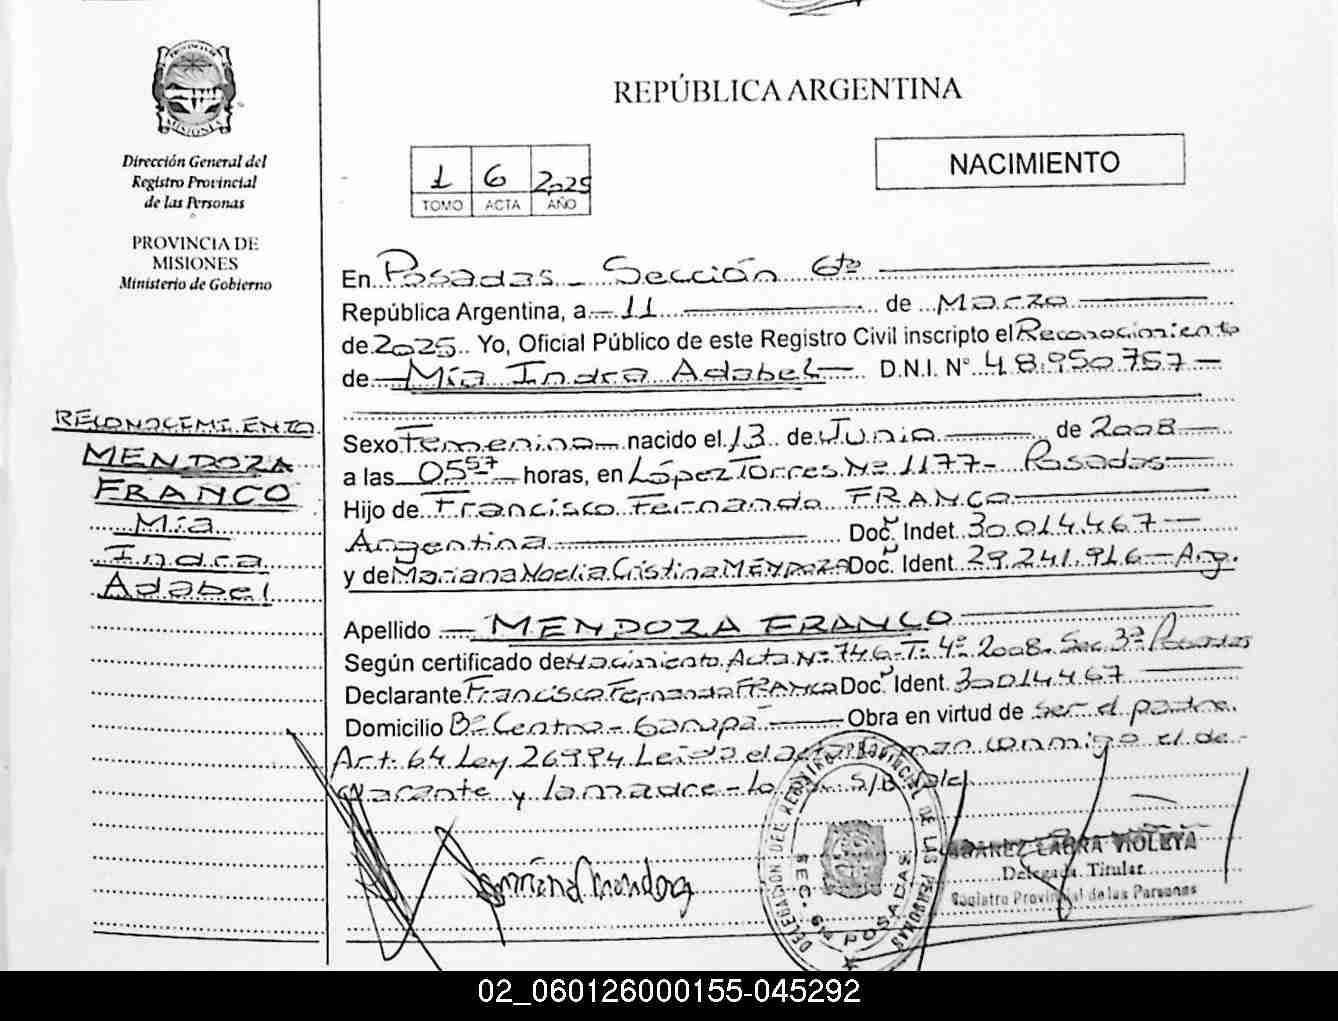 REPÚBLICA ARGENTINA
PROVINCIA DE MISIONES
Dirección General del
Registro Provincial
de las Personas
PROVINCIA DE
MISIONES
Ministerio de Gobierno
NACIMIENTO
1 6 2025
TOMO ACTA AÑO
RECONOCIMIENTO
MENDOZA
FRANCO
Mía
Indra
Adabel
En Posadas - Sección 6ta
República Argentina, a 11 de Marzo
de 2025. Yo, Oficial Público de este Registro Civil inscripto el Reconocimiento
de Mía Indra Adabel D.N.I. N° 48.950.757
Sexo Femenino nacido el 13 de Junio de 2008
a las 05 57 horas, en López Torres Nº 1177 - Posadas
Hijo de Francisco Fernando FRANCO
Argentina Doc. Indet. 30.014.467
y de Mariana Noelia Cristina MENDOZA Doc. Ident. 29.241.916 - Arg.
Apellido MENDOZA FRANCO
Según certificado de Nacimiento Acta Nº 746 - T: 4º 2008. Sec. 3ª Posadas
Declarante Francisco Fernando FRANCO Doc. Ident. 30014.467
Domicilio Bº Centro - Garupá Obra en virtud de ser el padre.
Art. 64 Ley 26994 Leída el acta firman conmigo el de-
clarante y la madre -
Mariana Mendoza
DELEGACION DEL REGISTRO PROVINCIAL DE LAS PERSONAS
SEC. 6ta POSADAS
LABRA VIOLETA
Delegada Titular
Registro Provincial de las Personas
02_060126000155-045292